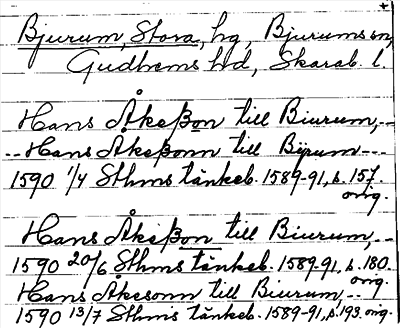 Bjurum, Stora, hg, Bjurums sn,
Gudhems hd, Skarab. l.
Hans Åkeßon till Biurum,--
--Hans Åkeßonn till Birum---
1590 1/4 Sthms tänkeb. 1589-91, s. 157.
orig.
Hans Åkeßon till Biurum,--
1590 20/6 Sthms tänkeb. 1589-91, s. 180.
orig.
Hans Akesonn till Biurum,--
1590 13/7 Sthms tänkeb. 1589-91, s. 193. orig.